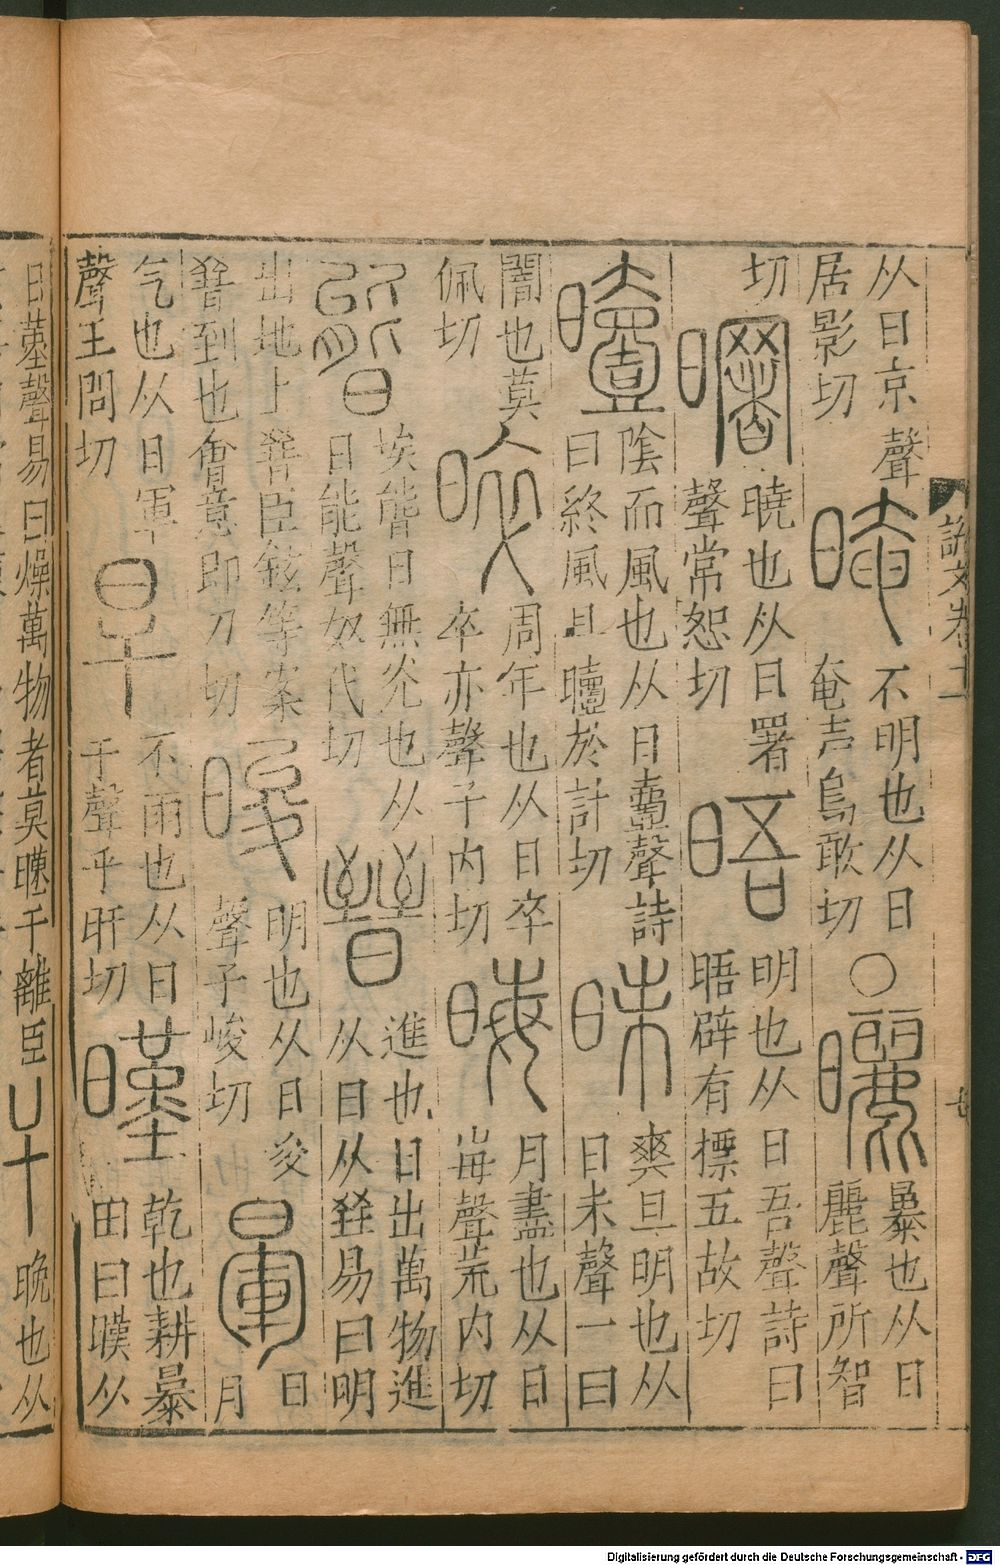 說文卷十一
七
从日京聲
居影切
晻
不明也从日
奄声烏敢切
○
曬
㬥也从日
麗聲所智
切
曙
曉也从日署
聲常恕切
晤
明也从日吾聲詩曰
晤辟有摽五故切
曀
陰而風也从日壹聲詩
曰終風且曀於計切
昧
爽旦明也从
日未聲一曰
闇也莫
佩切
晬
周年也从日卒
卒亦聲子内切
晦
月盡也从日
每聲荒内切
㬮
埃㬮日無光也从
日能聲奴代切
晉
進也日出萬物進
从日从臸易曰明
出地上臸臣鉉等案
臸到也會意即刀切
晙
明也从日夋
聲子峻切
暈
日
月
气也从日軍
聲王問切
旱
不雨也从日
干聲乎旰切
暵
乾也耕暴
田曰暵从
日堇聲易曰燥萬物者莫暵于離臣
晚也从
Digitalisierung gefördert durch die Deutsche Forschungsgemeinschaft - DFG